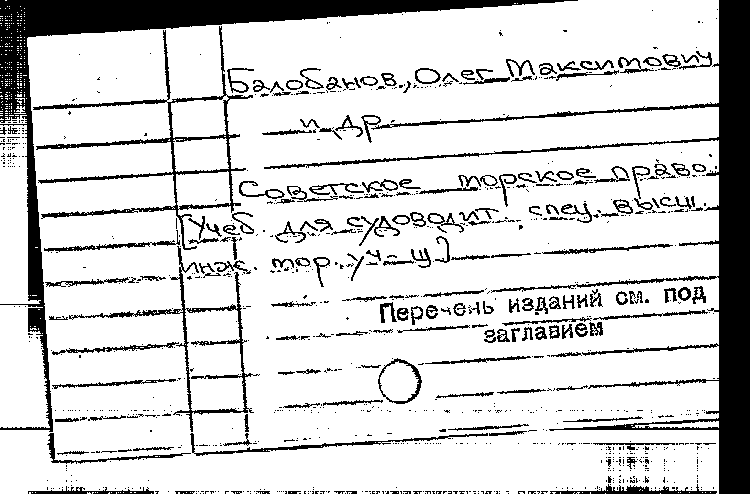 Балобанов, Олег Максимович
и др.
Советское морское право.
[Учеб. для судоводит. спец. высш.
инж. мор. уч-щ]
Перечень изданий см. под
заглавием